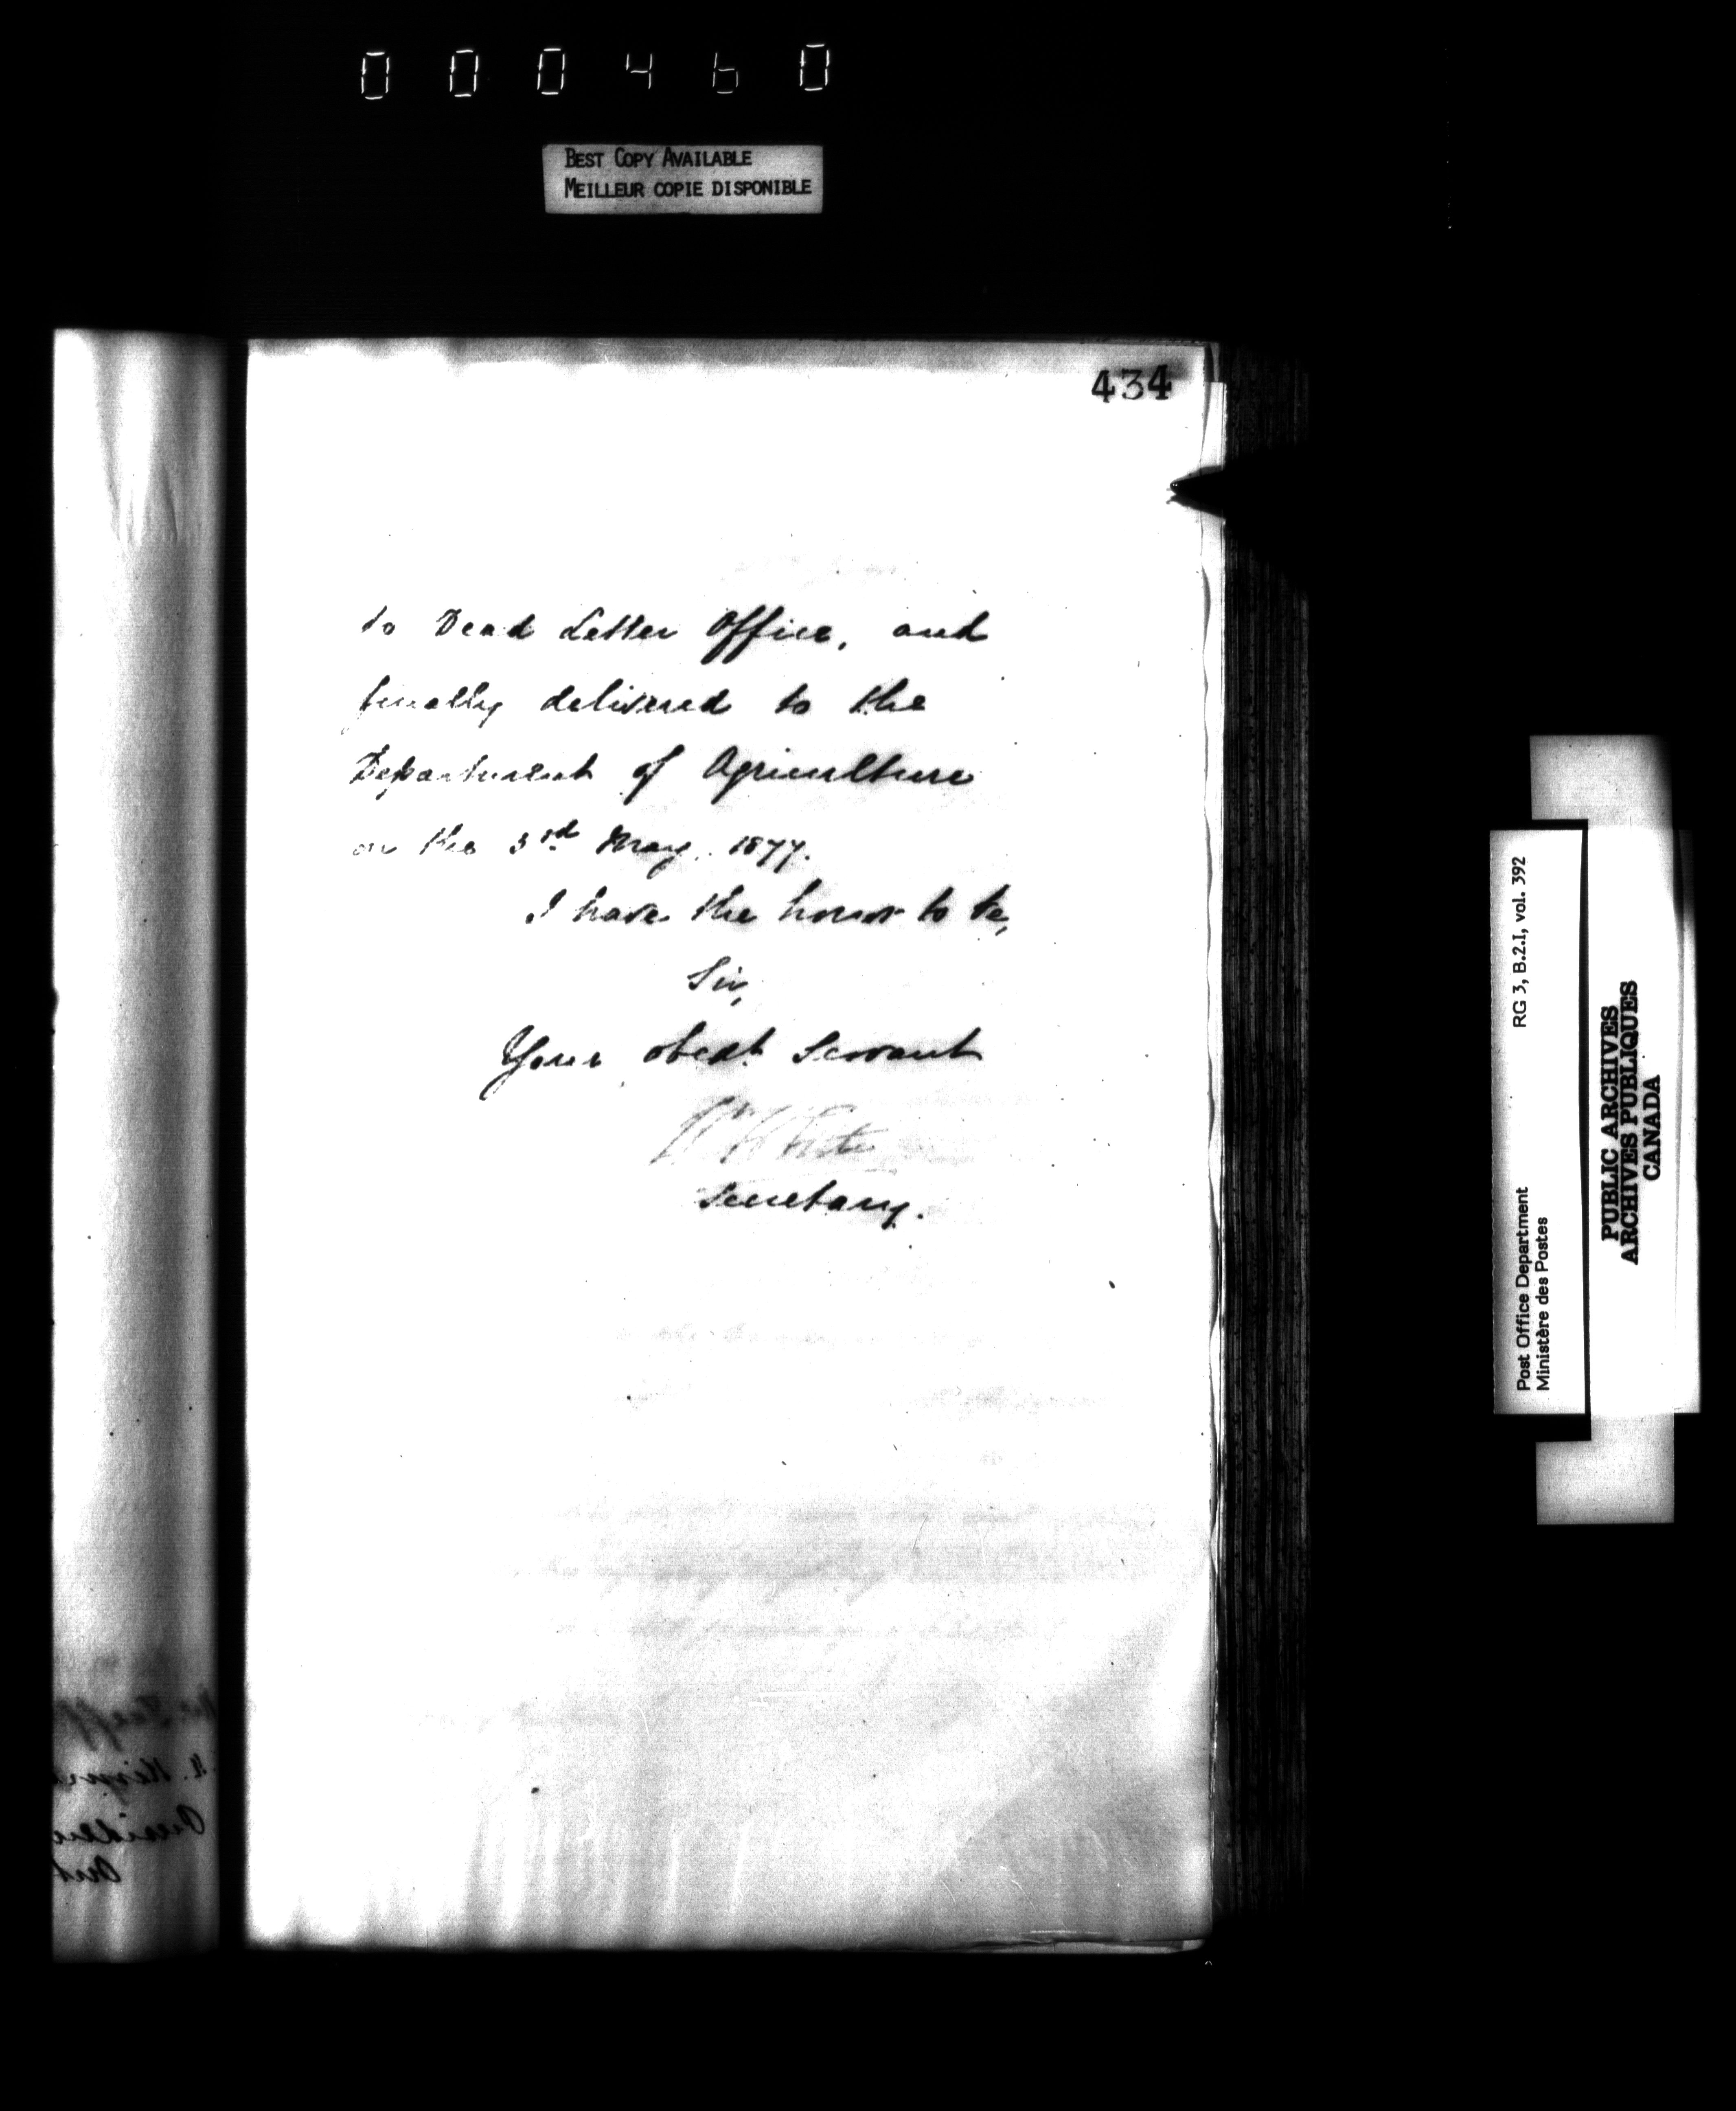 000460
BEST COPY AVAILABLE
MEILLEUR COPIE DISPONIBLE
434
to Dead Letter Office, and
finally delivered to the
Department of Agriculture
on the 3rd May, 1877.
I have the honor to be,
Sir,
Your obedt. Servant
Secretary.
RG 3, B.2.I, vol. 392
Post Office Department
Ministère des Postes
PUBLIC ARCHIVES
ARCHIVES PUBLIQUES
CANADA